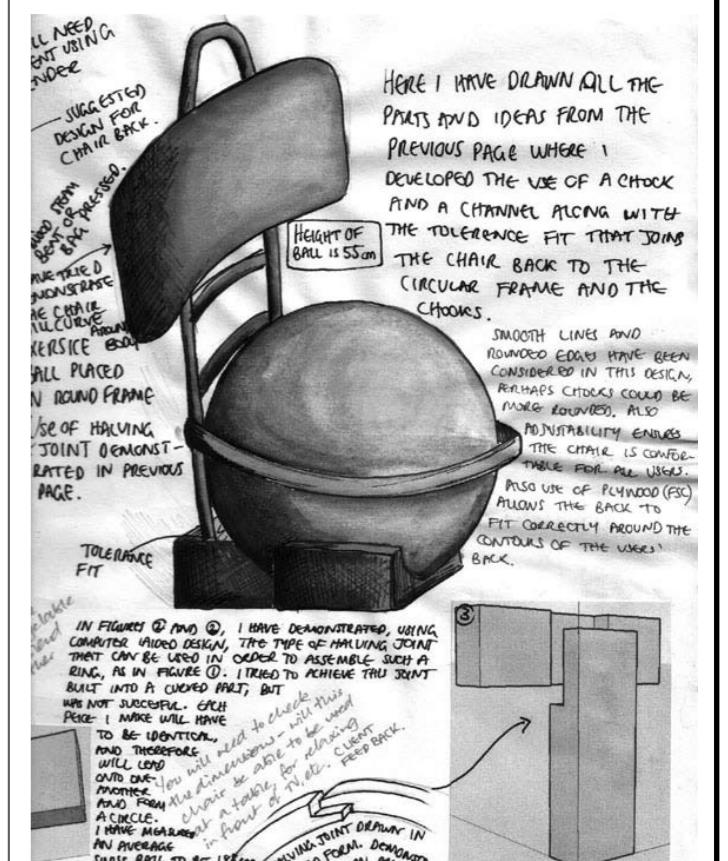 LL NEED
ENT USING
ENDER
SUGGESTED
DESIGN FOR
CHAIR BACK.
STEAM
BENT OR
BAG PRESSED.
TRIED
CHAIR
CURVE
AROUND
BODY
PLACED
ROUND FRAME
USE OF HALVING
JOINT DEMONST-
RATED IN PREVIOUS
PAGE.
TOLERANCE
FIT
HEIGHT OF
BALL IS 55cm
HERE I HAVE DRAWN ALL THE
PARTS AND IDEAS FROM THE
PREVIOUS PAGE WHERE I
DEVELOPED THE USE OF A CHOCK
AND A CHANNEL ALONG WITH
THE TOLERENCE FIT THAT JOINS
THE CHAIR BACK TO THE
CIRCULAR FRAME AND THE
CHOCKS.
SMOOTH LINES AND
ROUNDED EDGES HAVE BEEN
CONSIDERED IN THIS DESIGN,
PERHAPS CHOCKS COULD BE
MORE ROUNDED. ALSO
ADJUSTABILITY ENSURES
THE CHAIR IS COMFOR-
TABLE FOR ALL USERS.
ALSO USE OF PLYWOOD (FSC)
ALLOWS THE BACK TO
FIT CORRECTLY AROUND THE
CONTOURS OF THE USERS'
BACK.
IN FIGURES ② AND ②, I HAVE DEMONSTRATED, USING
COMPUTER AIDED DESIGN, THE TYPE OF HALVING JOINT
THAT CAN BE USED IN ORDER TO ASSEMBLE SUCH A
RING, AS IN FIGURE ①. I TRIED TO ACHIEVE THIS JOINT
BUILT INTO A CURVED PART, BUT
WAS NOT SUCCESFUL. EACH
PEICE I MAKE WILL HAVE
TO BE IDENTICAL,
AND THEREFORE
WILL
ONTO ONE-
ANOTHER
AND FORM
A CIRCLE.
I HAVE MEASURED
AN AVERAGE
You will need to check
the dimensions - will this
chair be able to be used
at a table, for relaxing
in front of TV, etc.
CLIENT
FEEDBACK.
③
HALVING JOINT DRAWN IN
FORM.